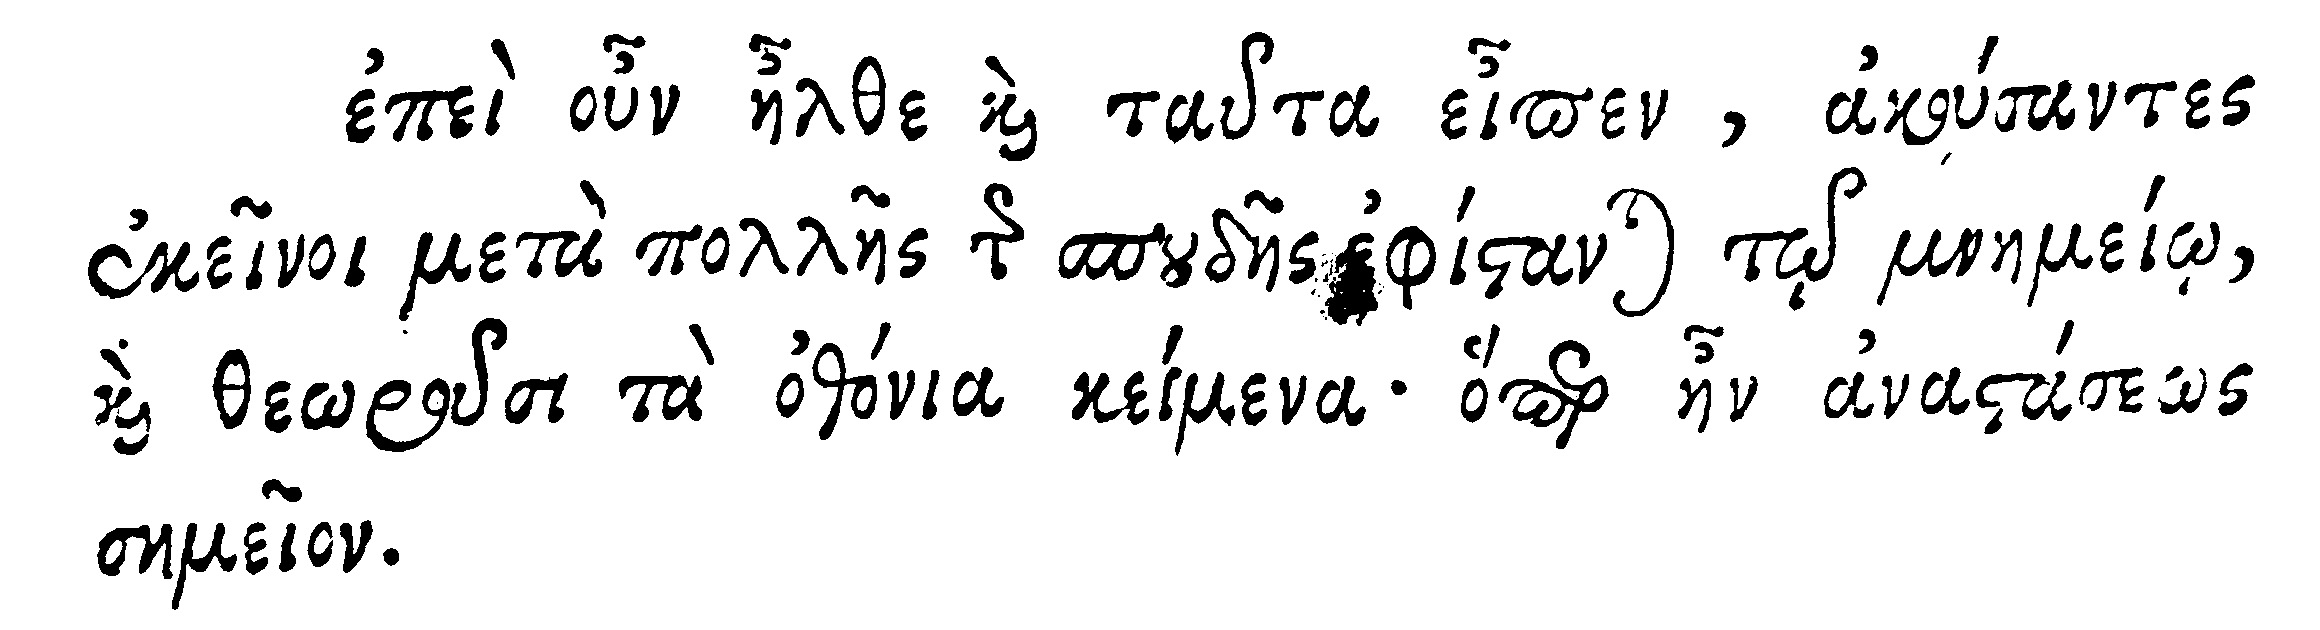 ἐπεὶ οὖν ἦλθε καὶ ταῦτα εἶπεν, ἀκούσαντες
ἐκεῖνοι μετὰ πολλῆς τῆς σπουδῆς ἐφίστανται τῷ μνημείῳ,
καὶ θεωροῦσι τὰ ὀθόνια κείμενα· ὅπερ ἦν ἀναστάσεως
σημεῖον.